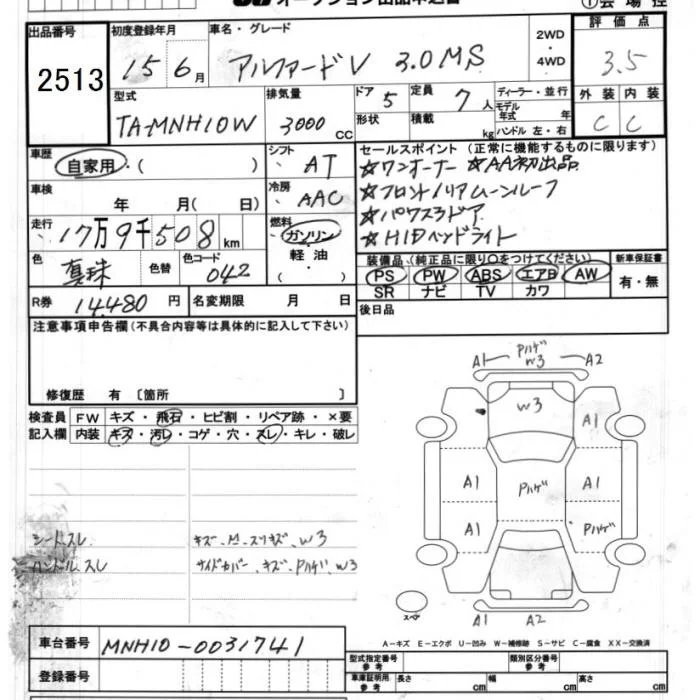 オークション出品申込書
①会場控
出品番号
2513
初度登録年月
15年6月
車名・グレード
アルファードV 3.0MS
2WD
・
4WD
評価点
3.5
外装 内装
C C
型式
TA-MNH10W
排気量
3000 CC
ドア 5
形状
定員 7人
積載 kg
ディーラー・並行
モデル年式 年
ハンドル 左・右
車歴
自家用・( )
車検
年 月( 日)
走行
17万9千508 km
色
真珠
色替
色コード
042
R券 14,480 円
名変期限 月 日
シフト
AT
冷房
AAC
燃料
ガソリン
軽油
・( )
セールスポイント (正常に機能するものに限ります)
☆ワンオーナー ☆AA初出品
☆フロント/リアムーンルーフ
☆パワスラドア
☆HIDヘッドライト
装備品(純正品に限り○をつけてください)
PS PW ABS エアB AW
SR ナビ TV カワ
新車保証書
有・無
後日品
注意事項申告欄(不具合内容等は具体的に記入して下さい)
修復歴 有 〔箇所 〕
検査員記入欄
FW キズ・飛石・ヒビ割・リペア跡・×要
内装 キズ・汚レ・コゲ・穴・スレ・キレ・破レ
シートスレ
ハンドルスレ
キズ、M、スリキズ、W3
サイドカバー、キズ、Pハゲ、W3
A1 Pハゲ W3 A2
W3
A1
A1 Pハゲ A1
A1 Pハゲ
スペア
A1 A2
A-キズ E-エクボ U-凹み W-補修跡 S-サビ C-腐食 XX-交換済
車台番号 MNH10-0031741
登録番号
型式指定番号 参考
類別区分番号 参考
車庫証明用 参考
長さ cm 幅 cm 高さ cm